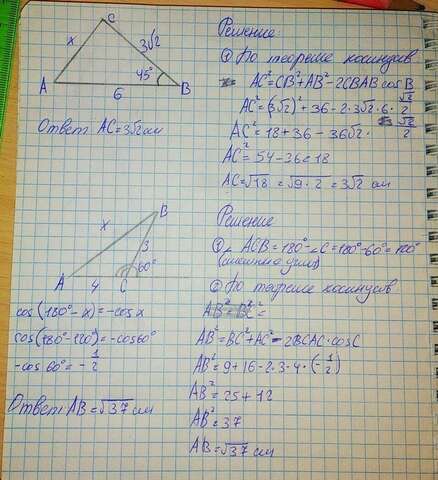 C
x
3√2
45°
A
6
B
Ответ AC=3√2 см
Решение
① По теореме косинусов
AC²=CB²+AB²-2CBAB cosB
AC²=(3√2)²+36-2·3√2·6·√2/2
AC²=18+36-36√2·√2/2
AC²=54-36=18
AC=√18=√9·2=3√2 см
B
x
3
60°
A
4
C
cos(180°-x)=-cosx
cos(180°-120°)=-cos60°
-cos60°=-1/2
Ответ AB=√37 см
Решение
① ∠ACB=180°-∠C=180°-60°=120°
(смежные углы)
② По теореме косинусов
AB²=BC²=
AB²=BC²+AC²-2BCAC·cosC
AB²=9+16-2·3·4·(-1/2)
AB²=25+12
AB²=37
AB=√37 см